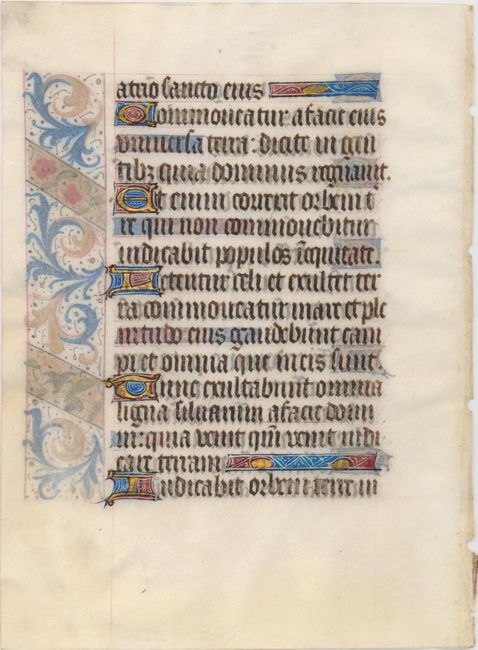 atrio sancto eius
Commoueatur a facie eius
vniuersa terra: dicite in gen
tibz quia dominus regnauit.
Et enim correxit orbem t
re qui non commouebitur
iudicabit populos ī equitate.
Letentur celi et exultet ter
ra commoueatur mare et ple
nitudo eius gaudebunt cam
pi et omnia que in eis sunt.
Tunc exultabunt omnia
ligna siluarum a facie domi
ni: quia venit qm̄ venit iudi
care terram
Iudicabit orbem terre in